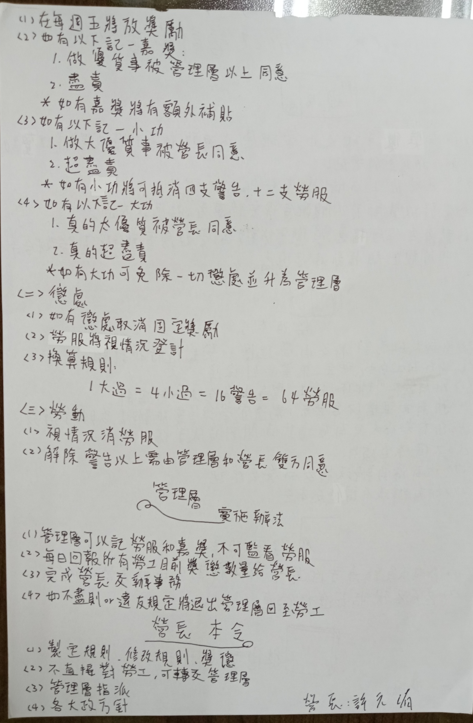 (1) 在每週五將放獎勵
(2) 如有以下記一嘉獎:
1. 做優質事被管理層以上同意
2. 盡責
* 如有嘉獎將有額外補貼
(3) 如有以下記一小功
1. 做大優質事被營長同意
2. 超盡責
* 如有小功將可抵消四支警告,十二支勞服
(4) 如有以下記一大功
1. 真的太優質被營長同意
2. 真的超盡責
* 如有大功可免除一切懲處並升為管理層
<二> 懲處
(1) 如有懲處取消固定獎勵
(2) 勞服將視情況登計
(3) 換算規則:
1大過 = 4小過 = 16警告 = 64勞服
<三> 勞動
(1) 視情況消勞服
(2) 解除警告以上需由管理層和營長雙方同意
管理層
實施辦法
(1) 管理層可以記勞服和嘉獎,不可監看勞服
(2) 每日回報所有勞工目前獎懲數量給營長
(3) 完成營長交辦事務
(4) 如不盡則or違反規定將退出管理層回至勞工
營長本令
(1) 製定規則、修改規則、獎懲
(2) 不直接對勞工,可轉交管理層
(3) 管理層指派
(4) 各大政方針
營長:許元